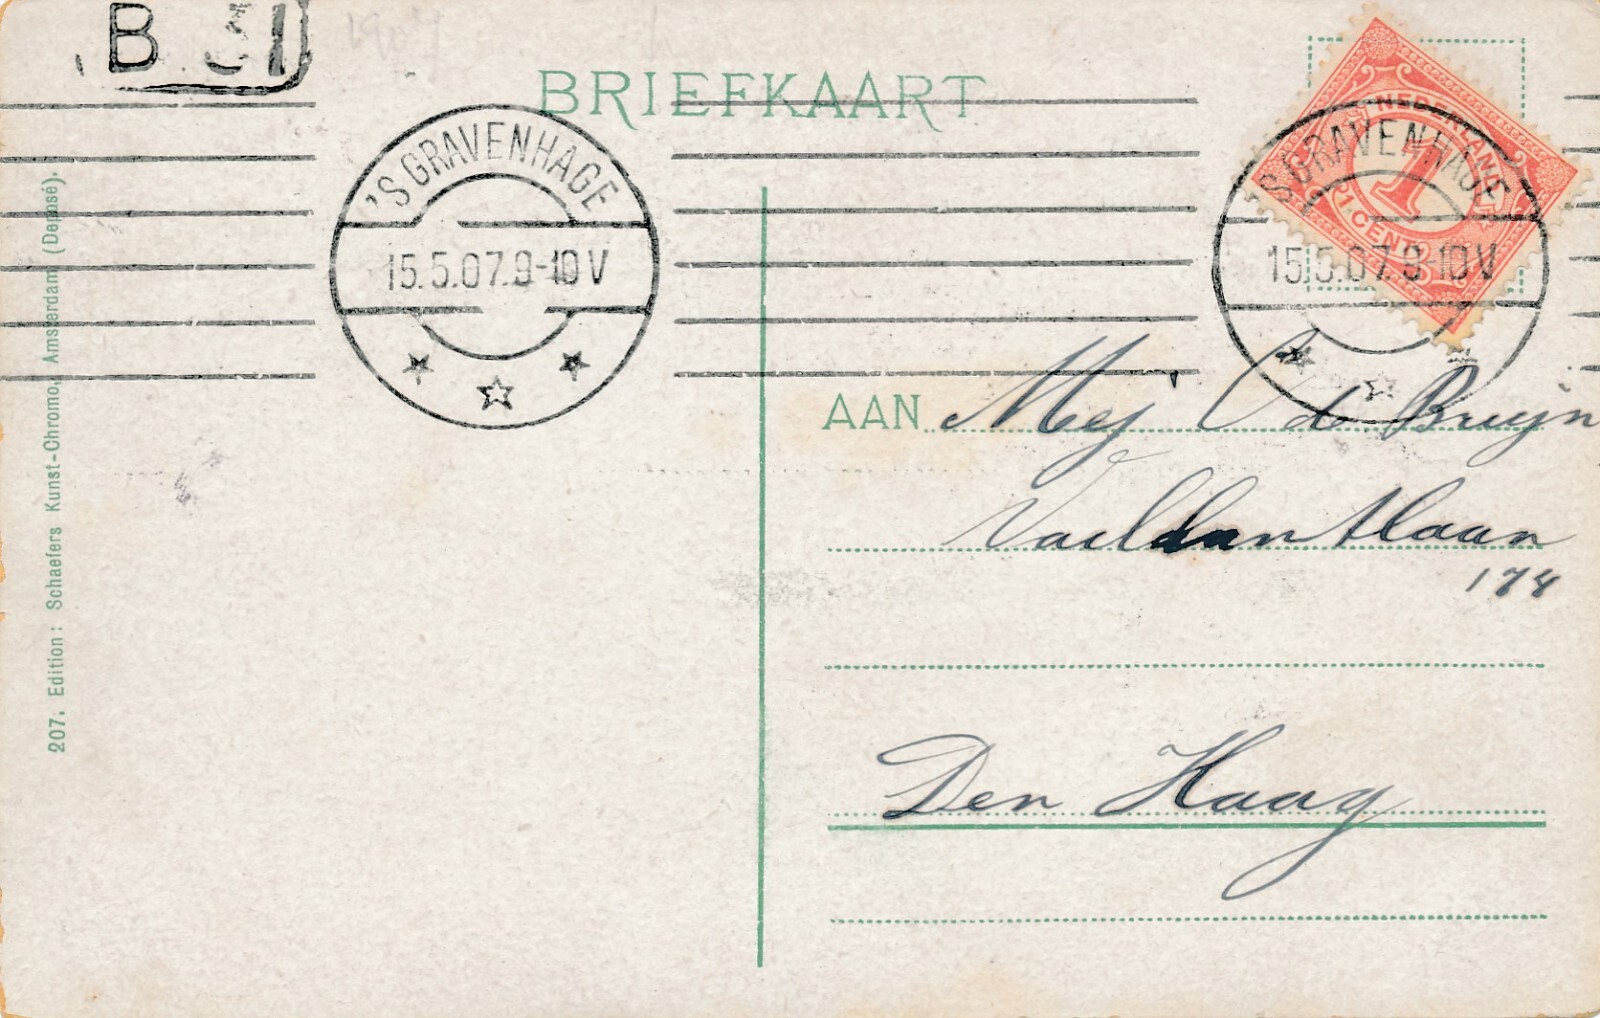 B 31
1907
BRIEFKAART
NEDERLAND
1
1 CENT
'S GRAVENHAGE
15.5.07.9-10V
'S GRAVENHAGE
15.5.07.9-10V
AAN Mej C de Bruijn
Vaillantlaan
174
Den Haag
207. Edition: Schaefers Kunst-Chromo, Amsterdam (Deposé).